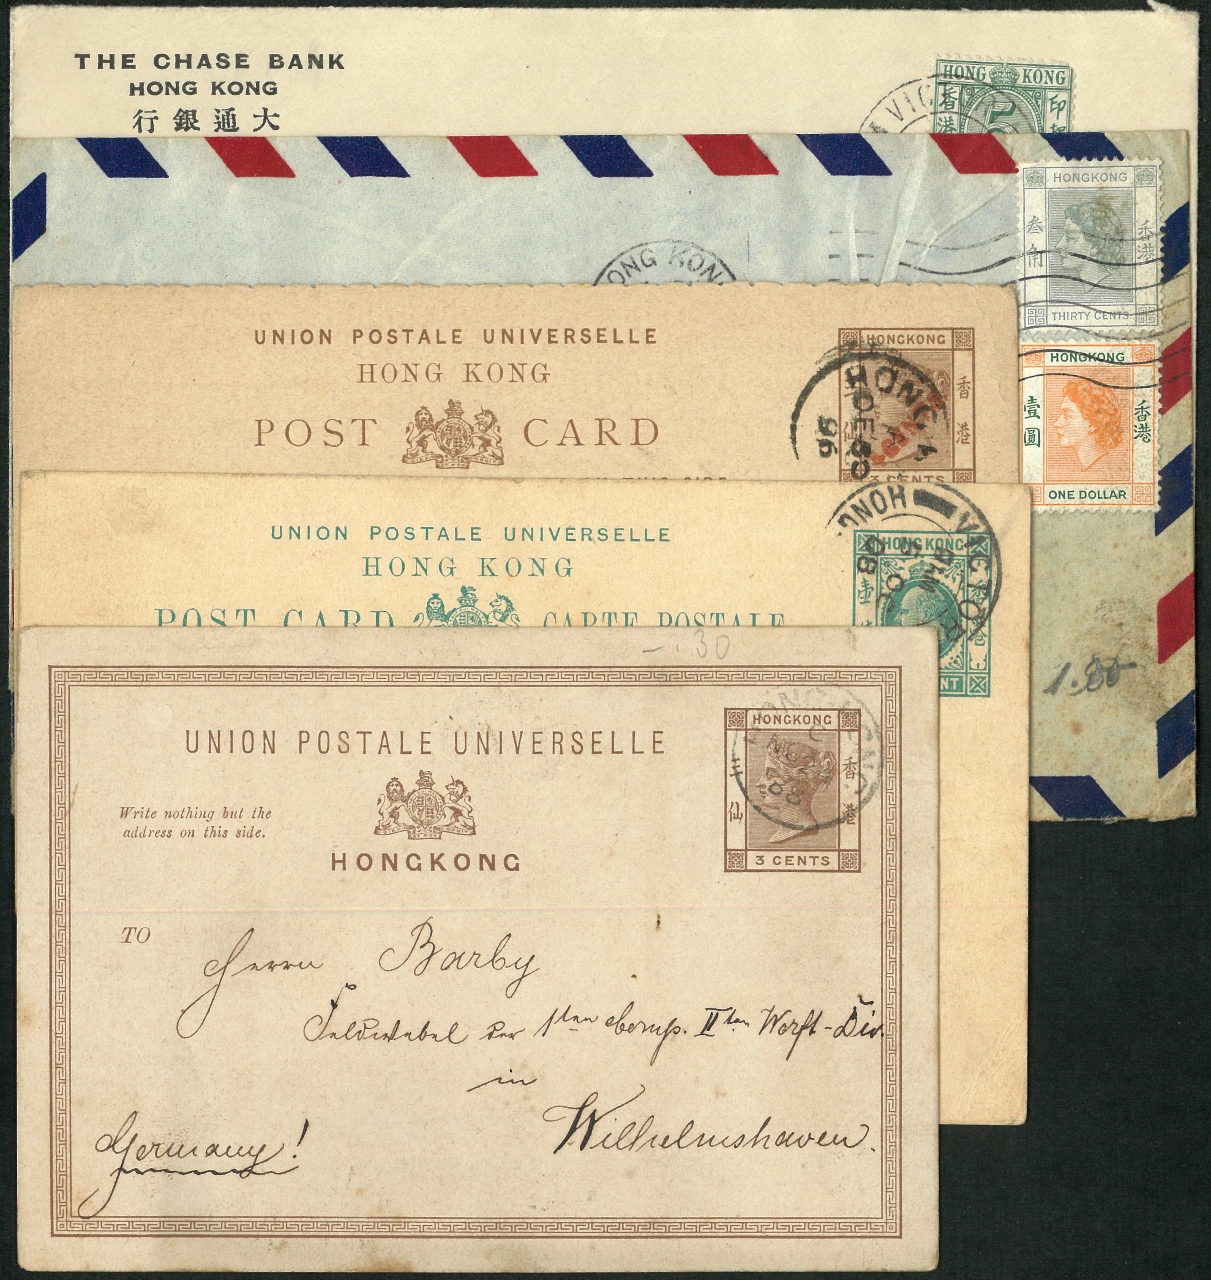 THE CHASE BANK
HONG KONG
行銀通大
HONG KONG
香港
印
5
VIC
HONGKONG
叁角
香港
THIRTY CENTS
HONG KONG
HONGKONG
壹圓
香港
ONE DOLLAR
UNION POSTALE UNIVERSELLE
HONG KONG
POST CARD
HONGKONG
香港
仙
3 CENTS
HONG K
DE 30
96
UNION POSTALE UNIVERSELLE
HONG KONG
POST CARD CARTE POSTALE
HONG KONG
壹
VICTOR
HONG
08
1.80
-1.30
UNION POSTALE UNIVERSELLE
Write nothing but the
address on this side.
HONGKONG
HONGKONG
香港
三仙
3 CENTS
HONG KONG
TO
Herrn Barby
Feldwebel der 1ten Comp. IIten Werft-Div.
in
Wilhelmshaven.
Germany!